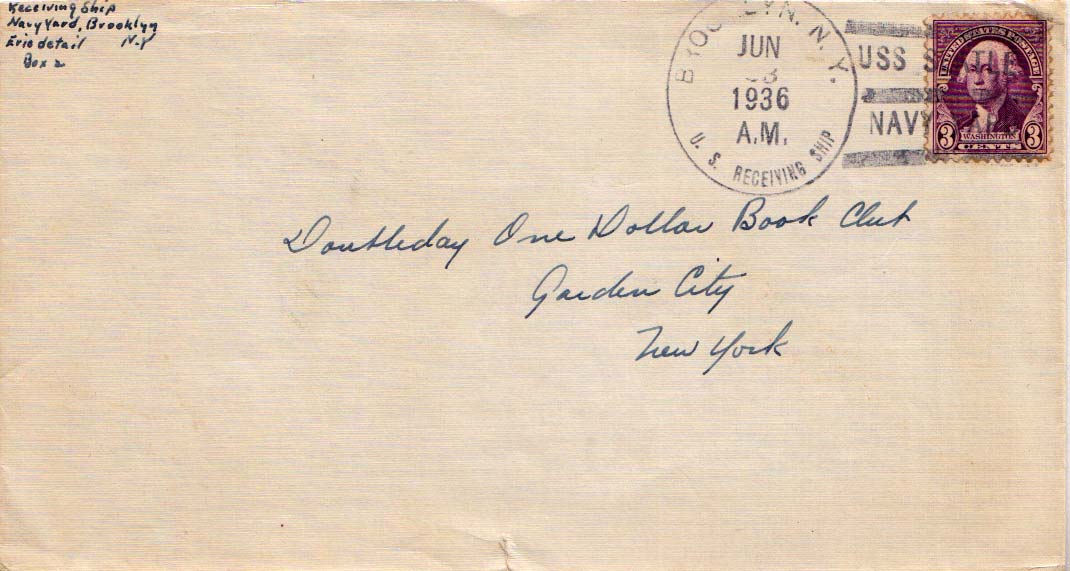 Receiving Ship
Navy Yard, Brooklyn
Erie detail N.Y
Box 2
BROOKLYN, N.Y.
JUN
1936
A.M.
U. S. RECEIVING SHIP
USS SEATTLE
NAVY YARD
UNITED STATES POSTAGE
3 WASHINGTON 3
CENTS
Doubleday One Dollar Book Club
Garden City
New York